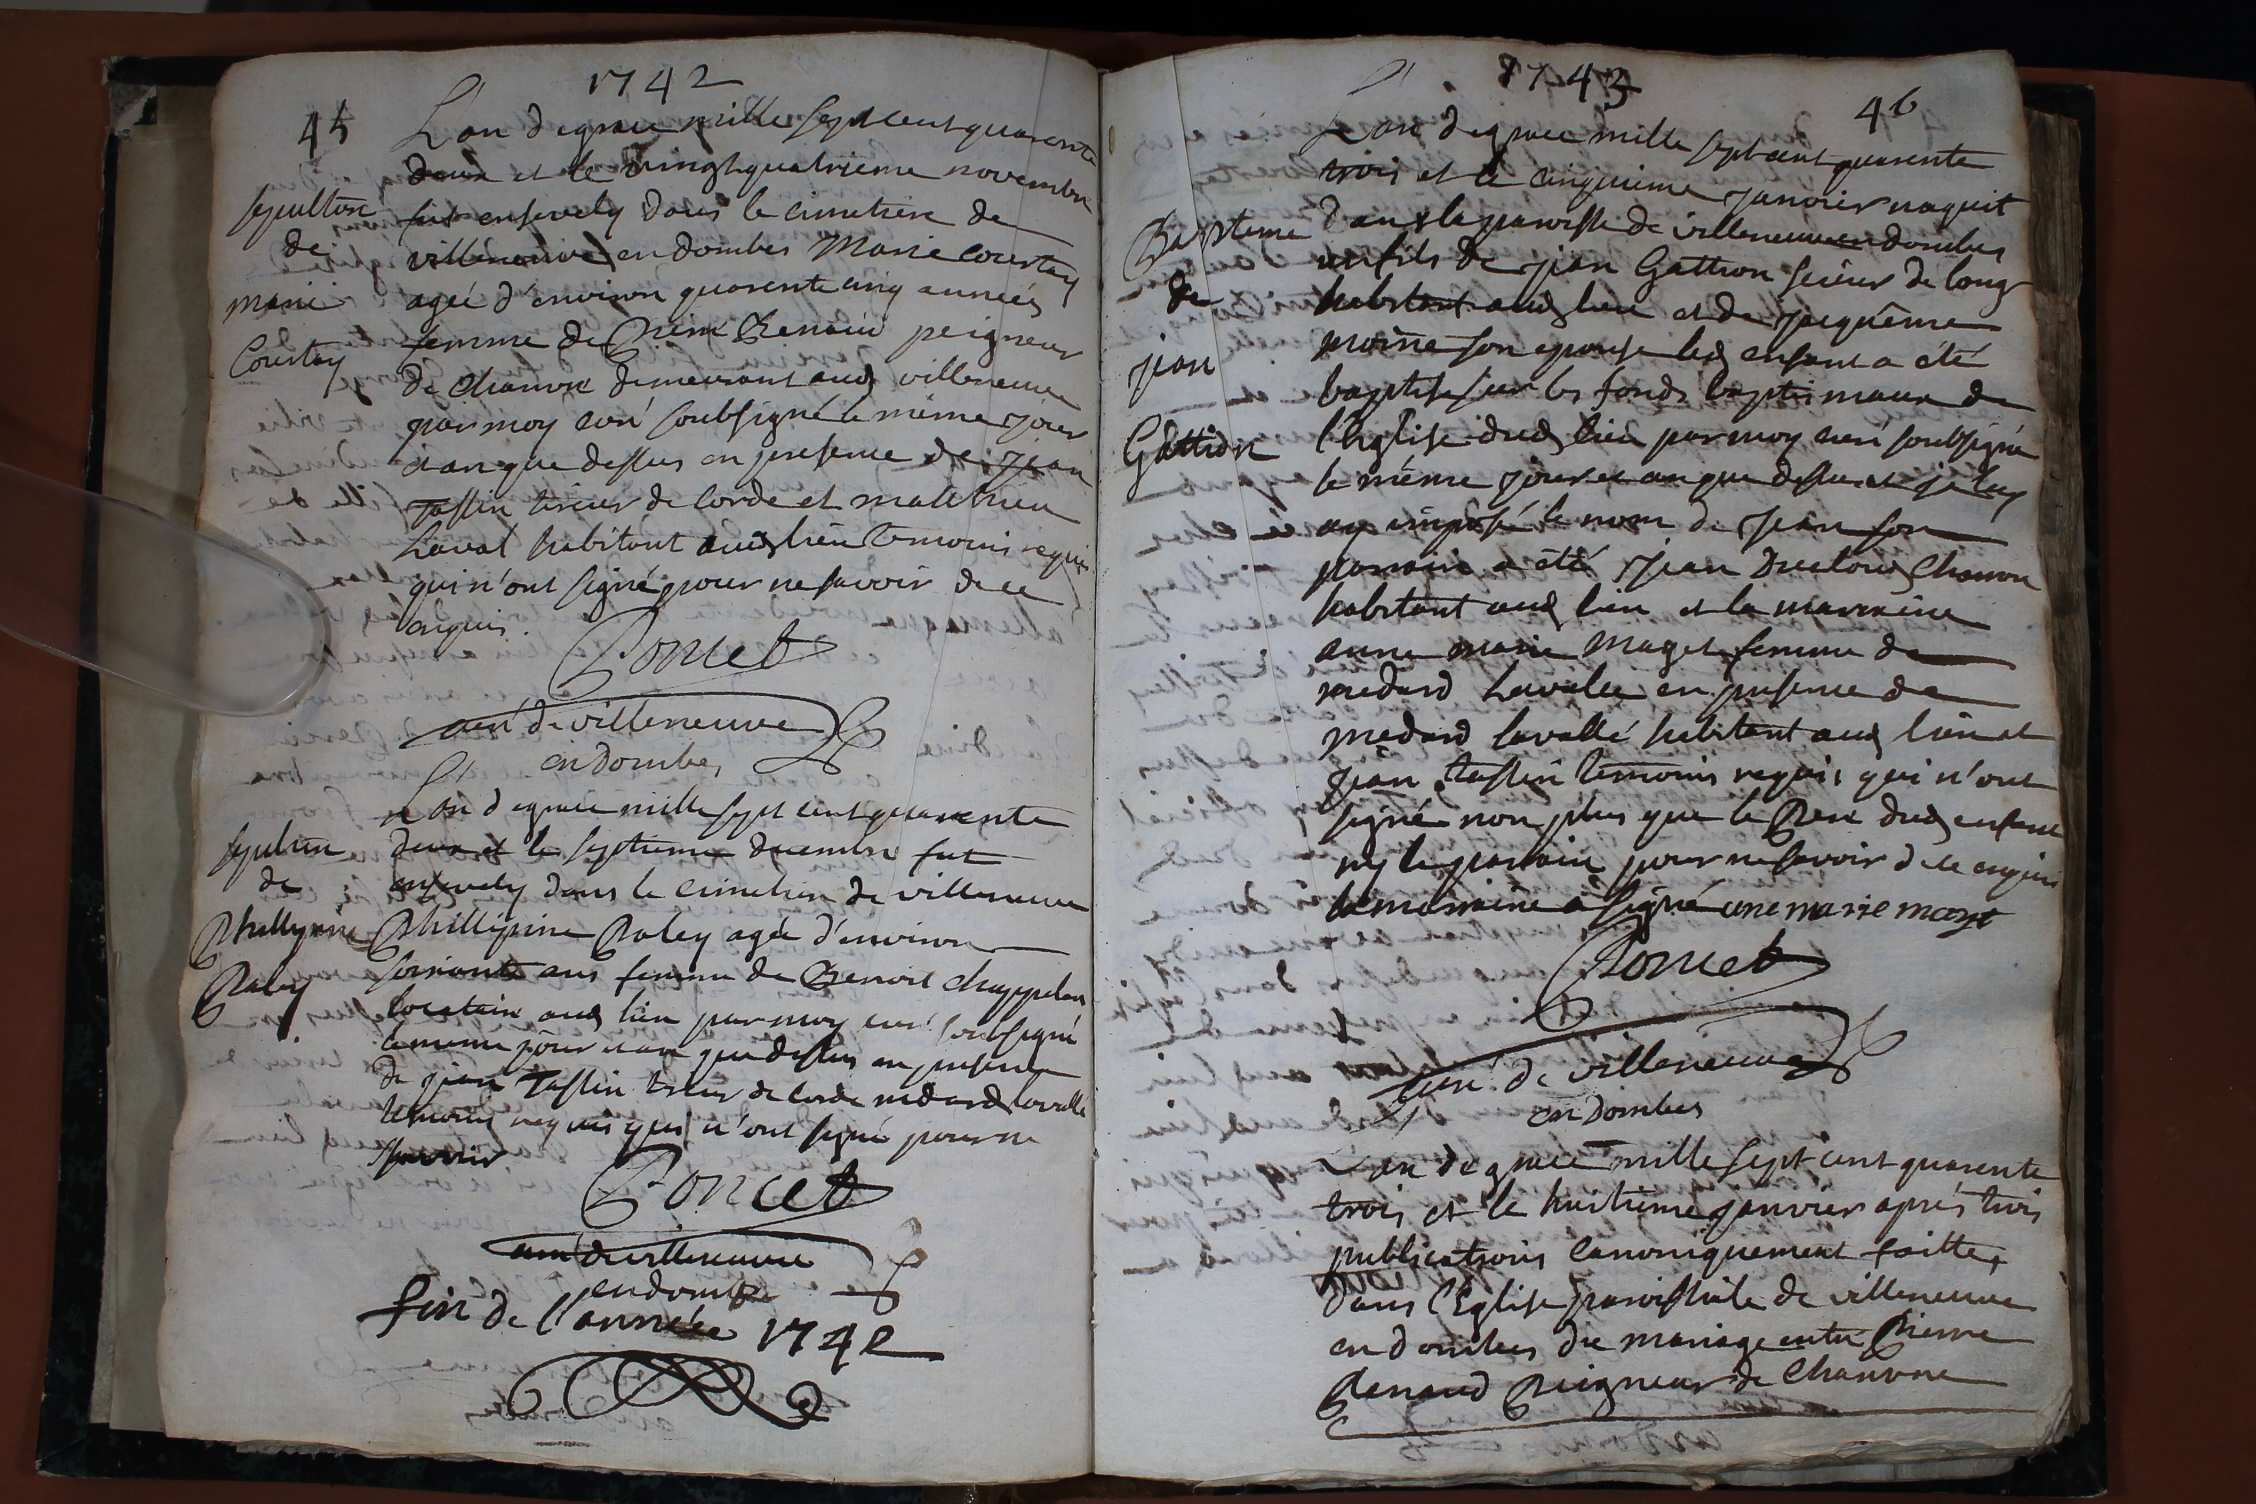 1742
45
L'an de grace mille sept cent quarente
deux et le vingt quatrieme novembre
fut ensevely dans le cimetiere de
villeneuve en dombes Marie Courtay
agée d'environ quarente cinq années
femme de Renaud peigneur
de chanvre demeurant aud villeneuve
par moy curé soubsigné le même jour
et an que dessus en presence de jean
Tassin tireur de corde et matthieu
Laval habitant aud lieu temoins requis
qui n'ont signé pour ne savoir de ce
enquis.
Poncet
curé de villeneuve
en dombes
sepulture
de
marie
Courtay
L'an de grace mille sept cent quarente
deux et le septieme decembre fut
ensevely dans le cimetiere de villeneuve
Phillipine Paley agée d'environ
soixante ans femme de Benoit chappelan
locataire aud lieu par moy curé soubsigné
le meme jour et an que dessus en presence
de jean Tassin tireur de corde medard lavallé
temoins requis qui n'ont signé pour ne
savoir
Poncet
curé de villeneuve
en dombes
sepulture
de
Phillipine
Paley
fin de l'année 1742
1743
46
L'an de grace mille sept cent quarente
trois et le cinquieme janvier naquit
dans la paroisse de villeneuve en dombes
un fils de jean Gattion scieur de long
habitant aud lieu et de jacquême
moine son epouse led enfant a été
baptisé sur les fonds baptismaux de
l'Eglise dud lieu par moy curé soubsigné
le même jour et an que dessus et je luy
ay imposé le nom de Jean son
parrain a été Jean Duclou charron
habitant aud lieu et la marraine
anne marie Maget femme de
medard Lavalée en presence de
medard lavallé habitant aud lieu et
Jean tassin temoins requis qui n'ont
signé non plus que le Pere dud enfant
ny le parrain pour ne savoir de ce enquis
la marraine a signé ane marie maget
Poncet
curé de villeneuve
en dombes
Bapteme
de
jean
Gattion
L'an de grace mille sept cent quarente
trois et le huitieme janvier aprés trois
publications canoniquement faittes
dans l'Eglise paroissiale de villeneuve
en dombes du mariage entre Pierre
Renaud Peigneur de chanvre